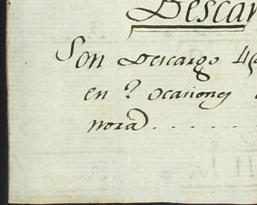 Descar
Son Descargo 4
en ocasiones
nora.......